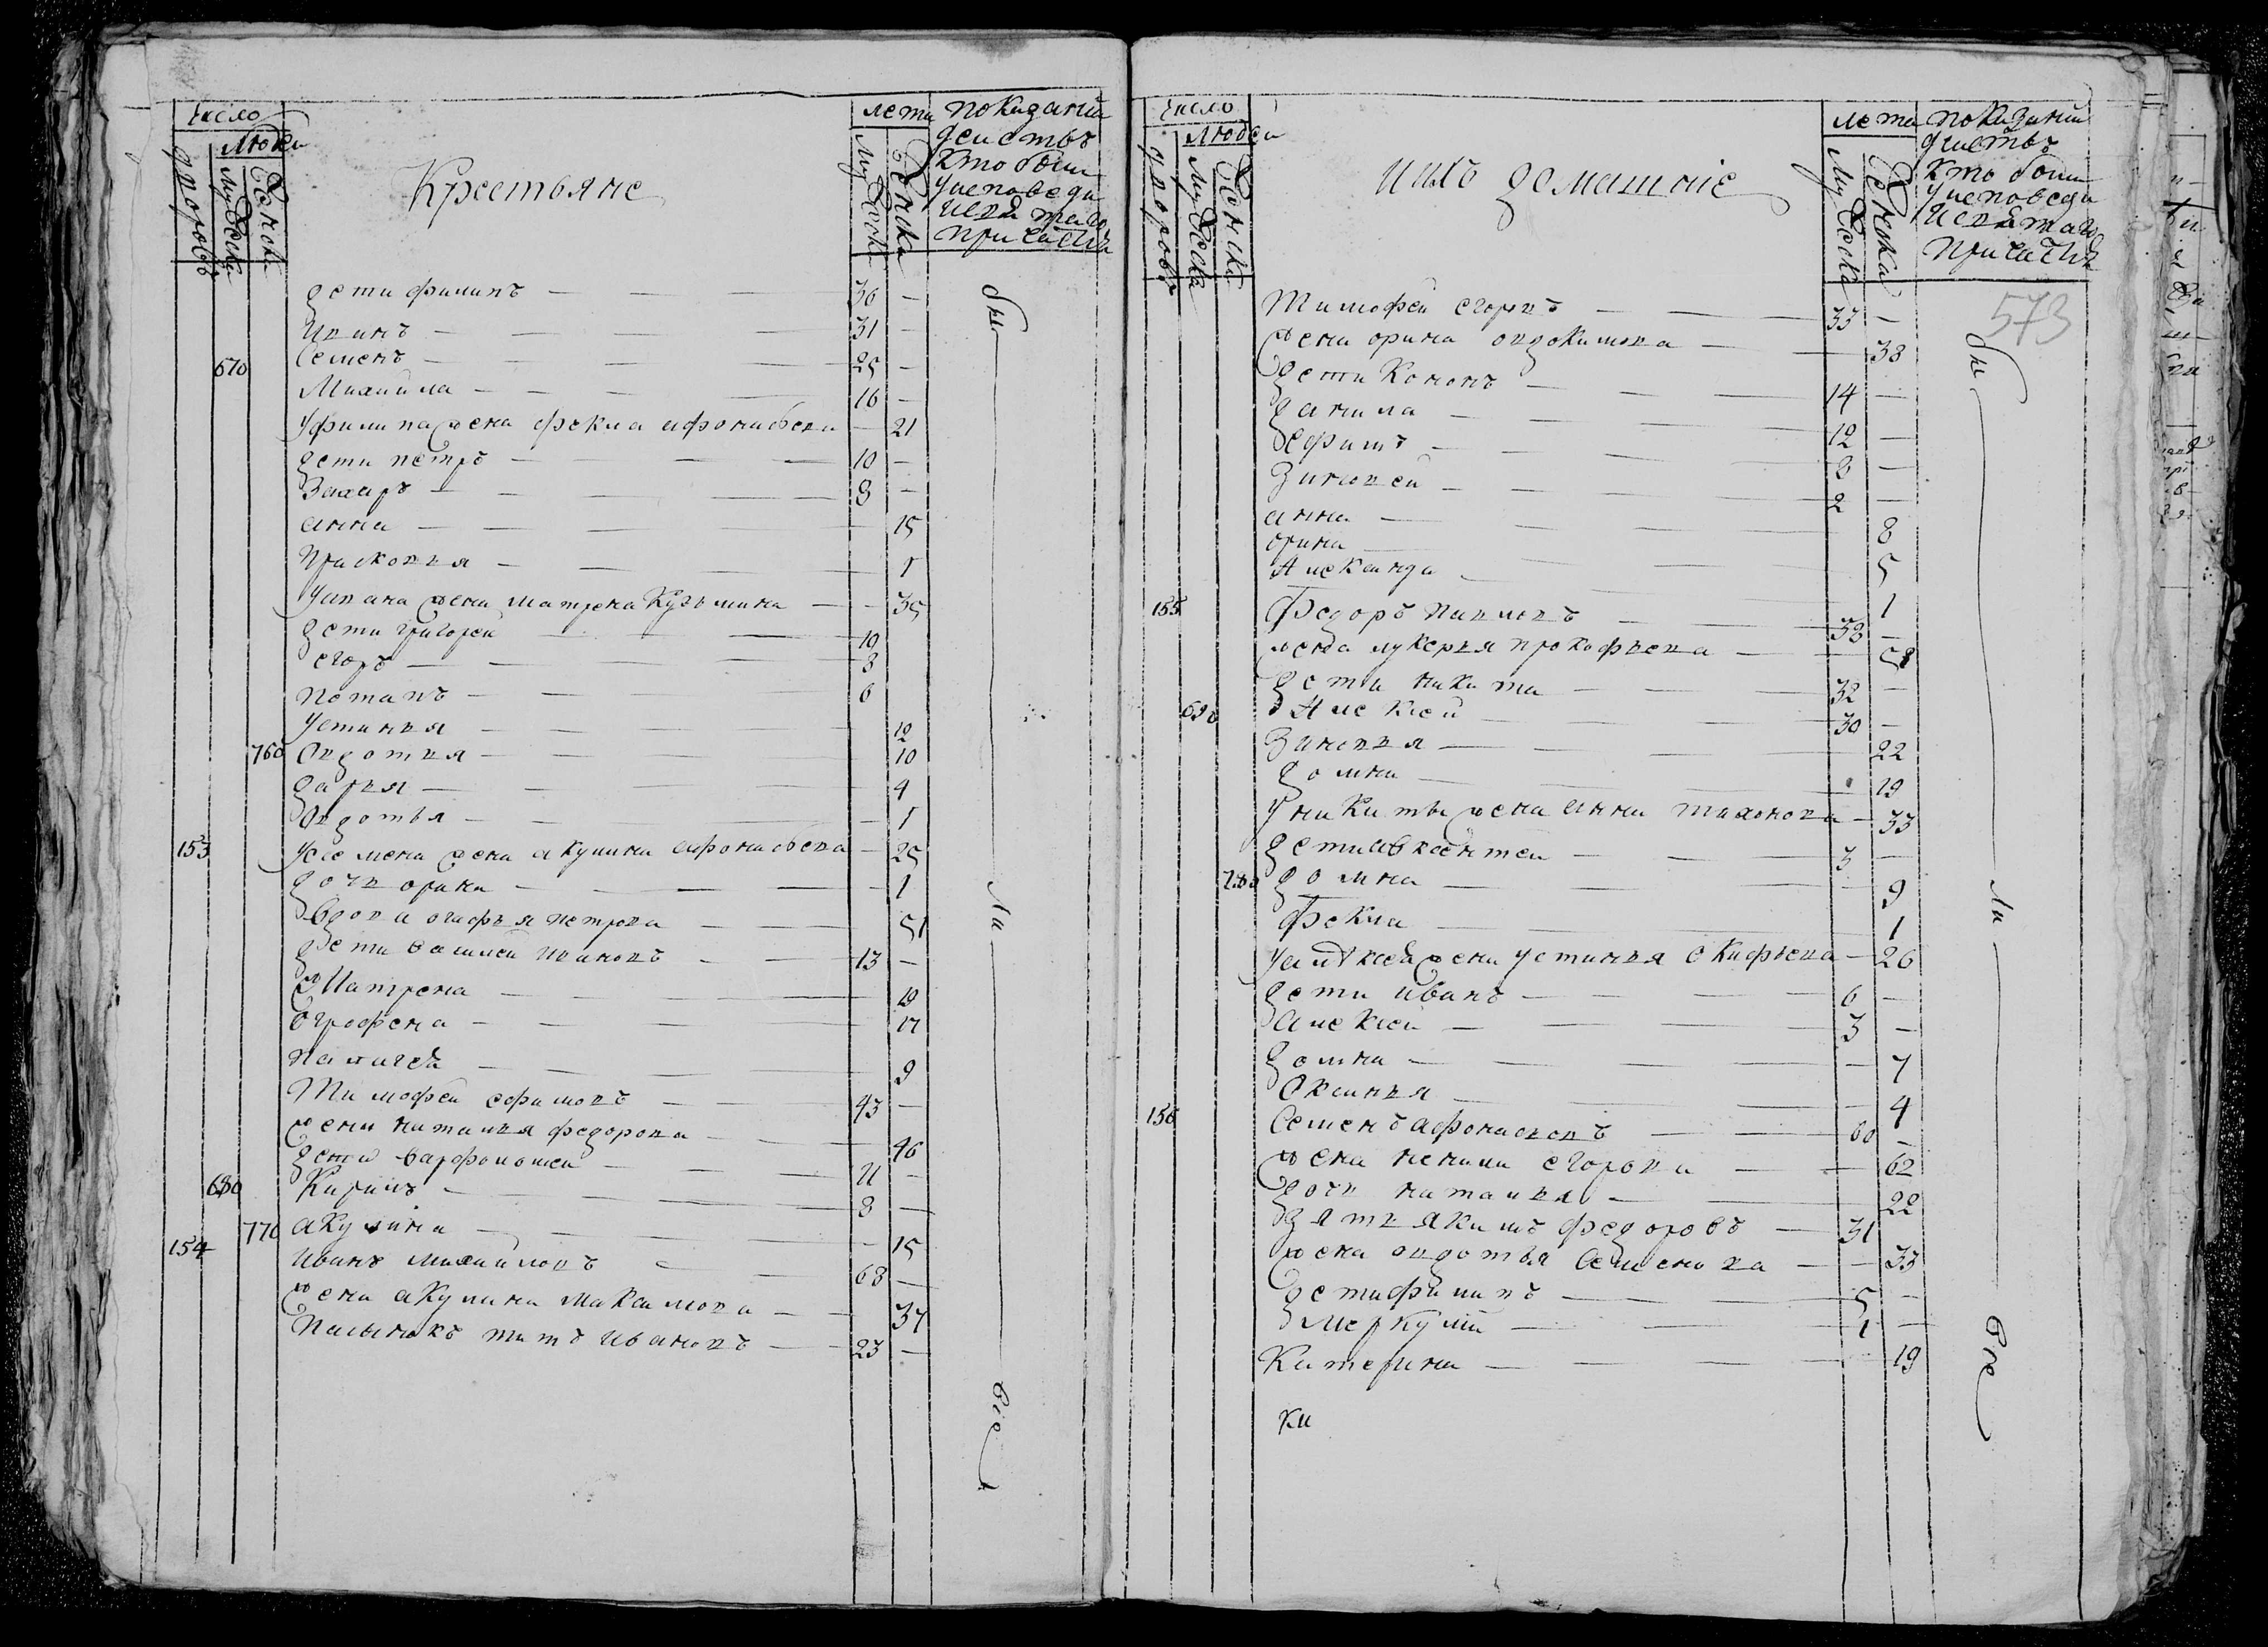 число
людей
дворовъ
мужеска
женска
Крестьяне
лета
мужеска
женска
показаний
действъ
кто были
у исповеди
и святаго
причастия
дети филипъ — 36 —
иванъ — 31 —
670 Семенъ — 25 —
Михайла — 16 —
у филипа жена фекла афонасьева — 21
дети петръ — 10 —
Захаръ — 8 —
анна — 15
Прасковья — 1
у ивана жена матрена Кузьмина — 35
дети григорей — 10
егоръ — 8
потапъ — 6
устинья — 12
760 Овдотья — 10
дарья — 4
Овдотья — 1
153 у семена жена акулина афонасьева — 25
дочь орина — 1
вдова огафья петрова — 51
дети василей ивановъ — 13 —
Матрена — 19
Огрофена — 17
Палагея — 9
Тимофей ефимовъ — 43 —
жена наталья федорова — 46
дети варфоломей — 11 —
680 Кирилъ — 8 —
770 акулина — 15
154 Иванъ михайловъ — 68 —
жена акулина максимова — 37
Пасынокъ титъ ивановъ — 23 —
бы
ли
все
число
людей
дворовъ
мужеска
женска
ихъ домашние
лета
мужеска
женска
показаний
действъ
кто были
у исповеди
и святаго
причастия
573
Тимофей егоровъ — 33 —
жена орина овдокимова — 38
дети Кононъ — 14 —
данила — 12 —
ефимъ — 8 —
Зиновей — 2 —
анна — 8
орина — 5
Александра — 1
155 Федоръ павловъ — 58 —
жена лукерья прокофьева — 58
дети никита — 32 —
690 Алексей — 30 —
Зиновья — 22
домна — 19
у никиты жена анна тихонова — 33
дети авксентей — 3 —
780 домна — 9
Фекла — 1
у алексея жена устинья — 26
дети иванъ — 6 —
алексей — 3 —
домна — 7
Оксинья — 4
156 Семенъ афонасьевъ — 60 —
жена ненила егорова — 62
дочь наталья — 22
зять якимъ федоровъ — 31
жена овдотья семенова — 33
дети филипъ — 5 —
меркулий — 1 —
Катерина — 19
ка
бы
ли
все